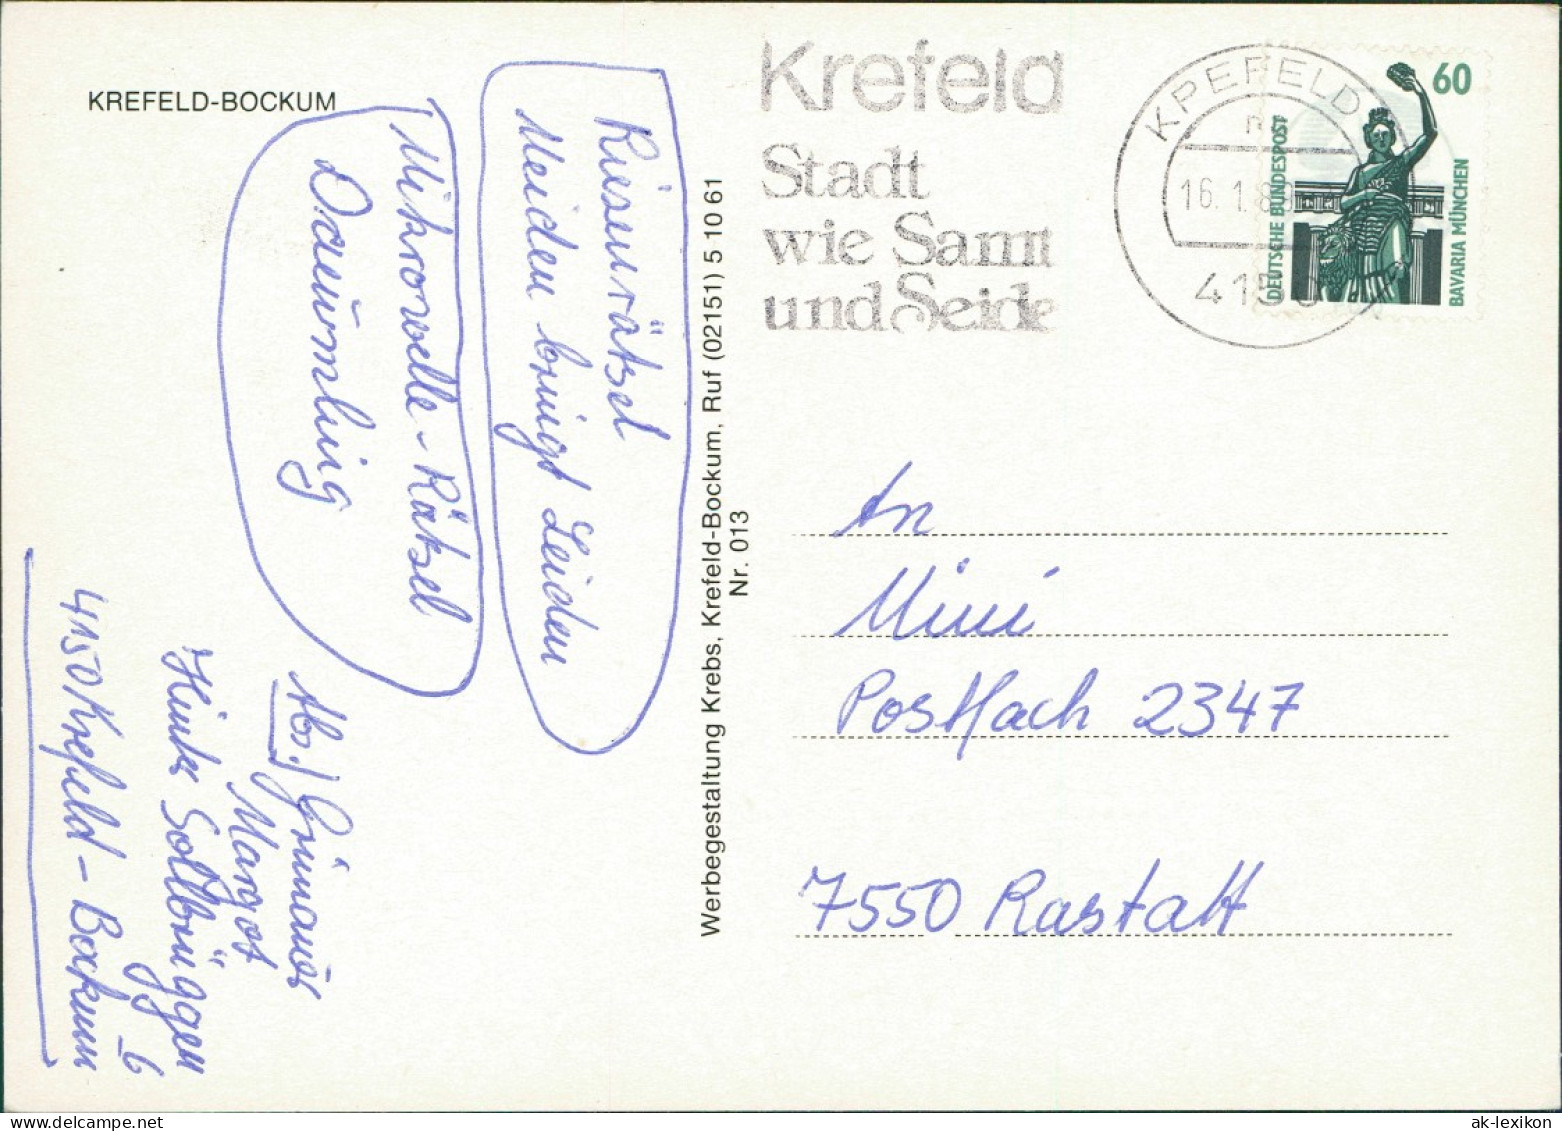 KREFELD-BOCKUM
Riesenrätsel
Meiden bringt Leiden
Mikrowelle-Rätsel
Daeumling
Abs./
Margot
4150 Krefeld-Bockum
Werbegestaltung Krebs, Krefeld-Bockum, Ruf (02151) 5 10 61
Nr. 013
Krefeld
Stadt
wie Samt
und Seide
KREFELD
16.1.89
DEUTSCHE BUNDESPOST
60
BAVARIA MÜNCHEN
An
Mini
Postfach 2347
7550 Rastatt
ak-lexikon